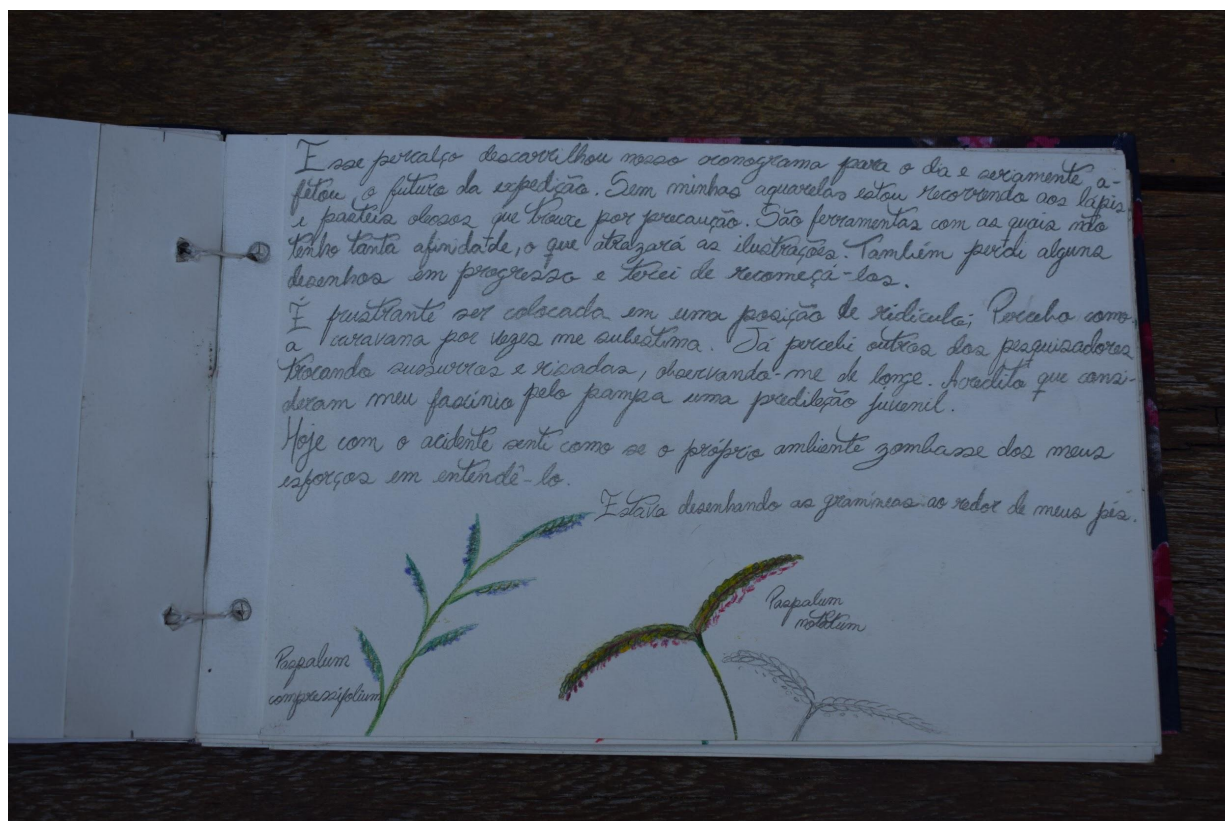 Esse percalço descarrilhou nosso cronograma para o dia e seriamente a-
fetou o futuro da expedição. Sem minhas aquarelas estou recorrendo aos lápis
e pastéis oleosos que trouxe por precaução. São ferramentas com as quais não
tenho tanta afinidade, o que atrazará as ilustrações. Também perdi alguns
desenhos em progresso e terei de recomeçá-los.
É frustrante ser colocada em uma posição de ridículo; Percebo como
a caravana por vezes me subestima. Já percebi outros dos pesquisadores
trocando sussurros e risadas, observando-me de longe. Acredito que consi-
deram meu fascínio pelo pampa uma predileção juvenil.
Hoje com o acidente senti como se o próprio ambiente zombasse dos meus
esforços em entendê-lo.
Estava desenhando as gramíneas ao redor de meus pés.
Paspalum
notatum
Paspalum
compressifolium